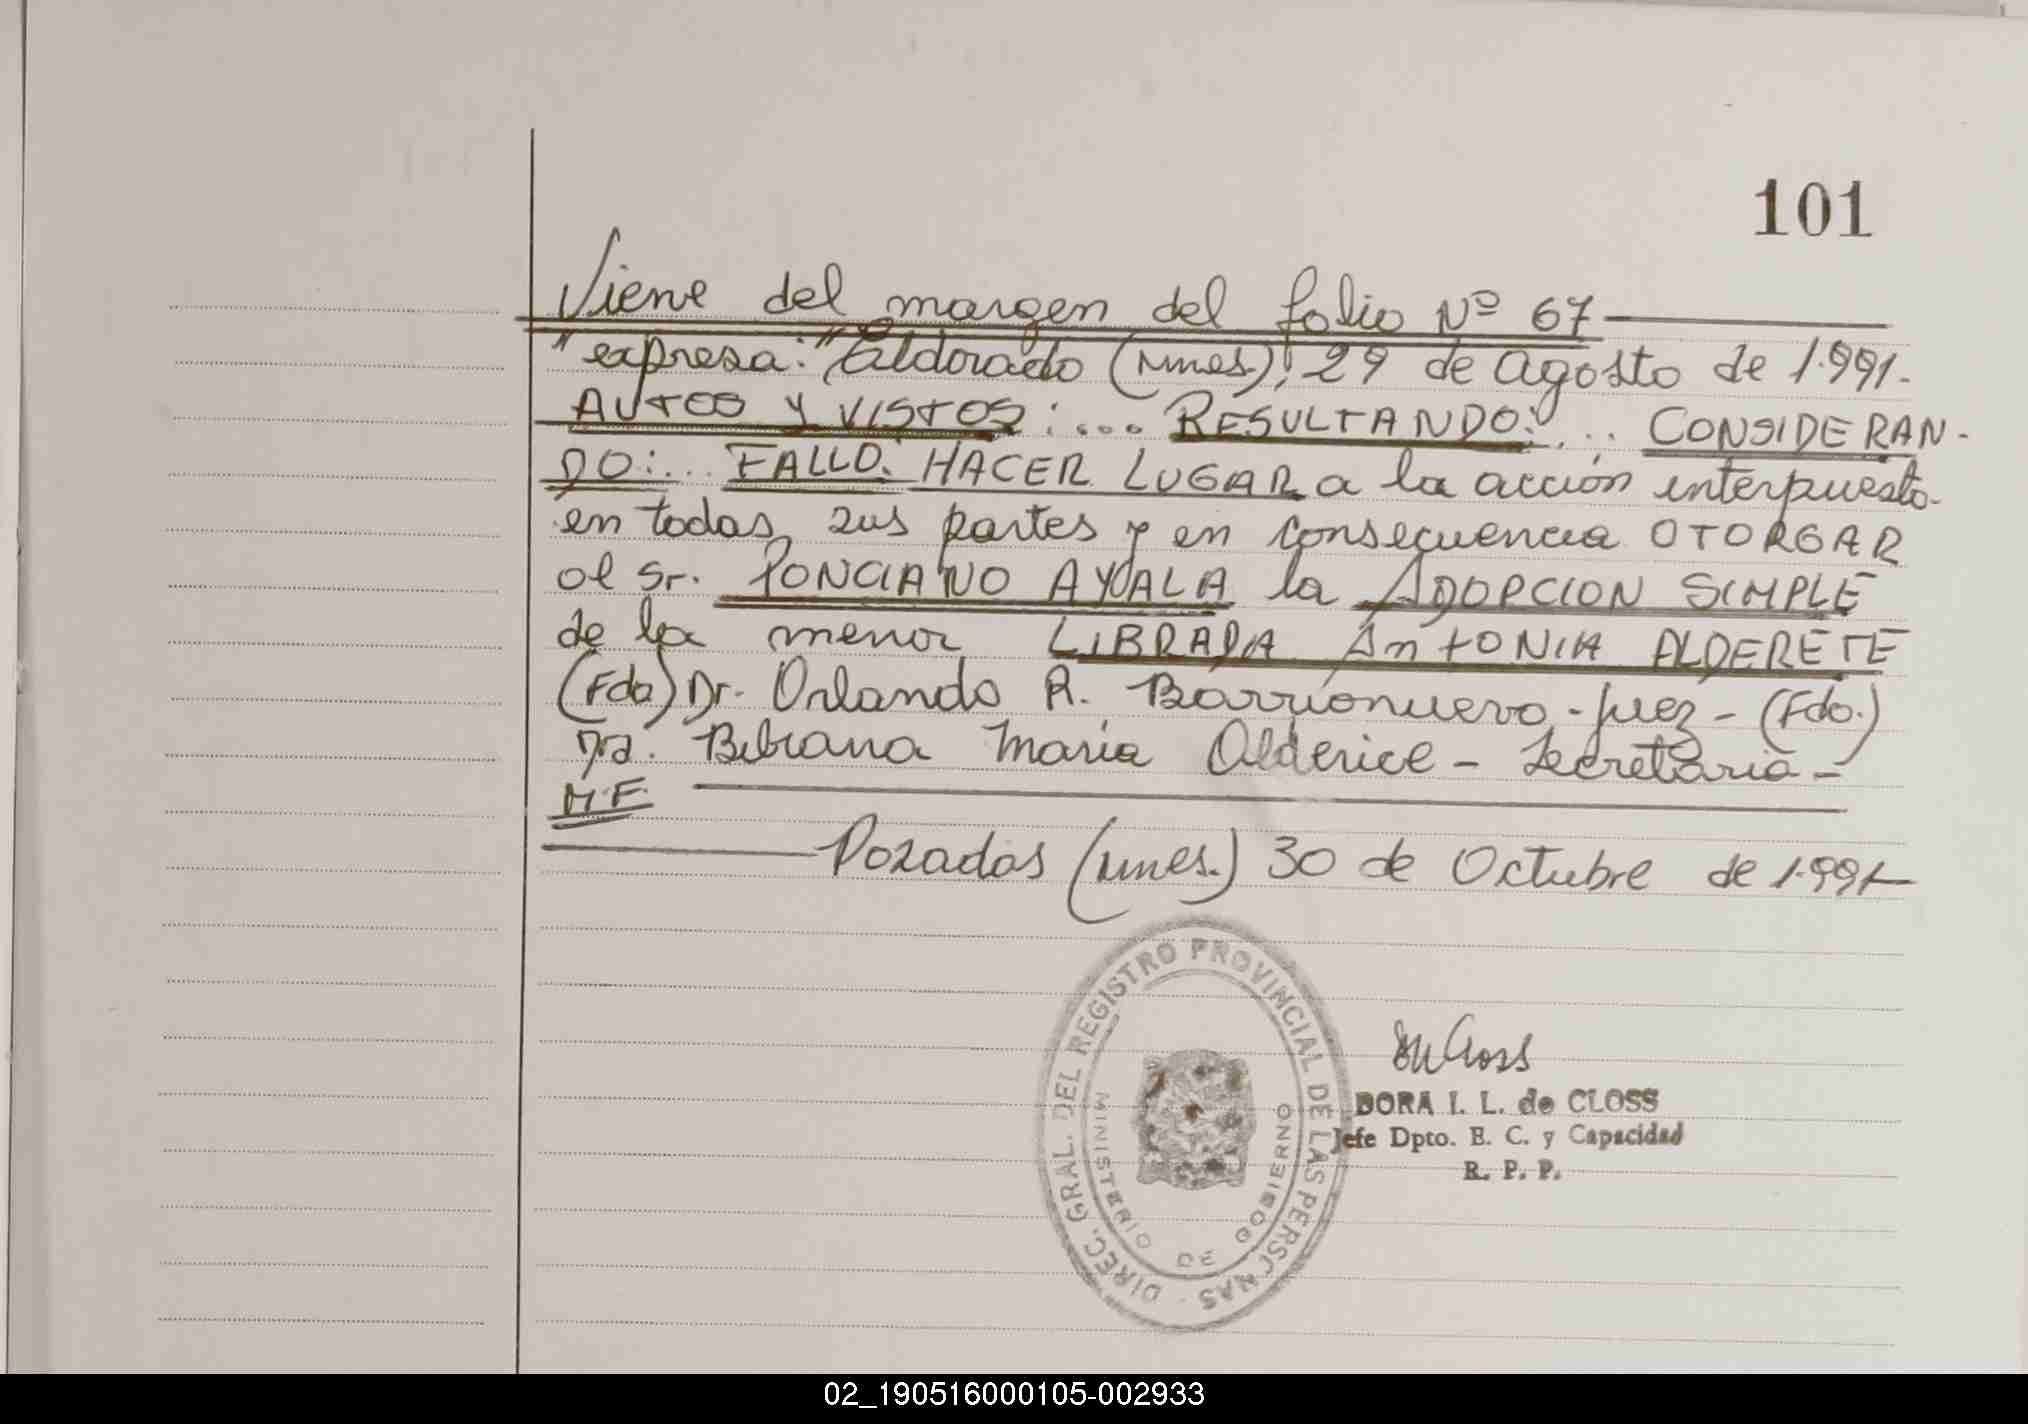 101
Viene del margen del folio Nº 67
"expresa:" Eldorado (Mnes.), 29 de Agosto de 1.991.
AUTOS Y VISTOS:... RESULTANDO:... CONSIDERAN-
DO:... FALLO: HACER LUGAR a la acción interpuesta
en todas sus partes y en consecuencia OTORGAR
al Sr. PONCIANO AYALA la ADOPCION SIMPLE
de la menor LIBRADA ANTONIA ALDERETE
(Fdo) Dr. Orlando R. Barrionuevo - Juez - (Fdo.)
Dra. Bibiana María Alderice - Secretaria -
M.F.
Posadas (Mnes.) 30 de Octubre de 1.991-
DIREC. GRAL. DEL REGISTRO PROVINCIAL DE LAS PERSONAS -
MINISTERIO DE GOBIERNO
DORA I. L. de CLOSS
Jefe Dpto. E. C. y Capacidad
R. P. P.
02_190516000105-002933